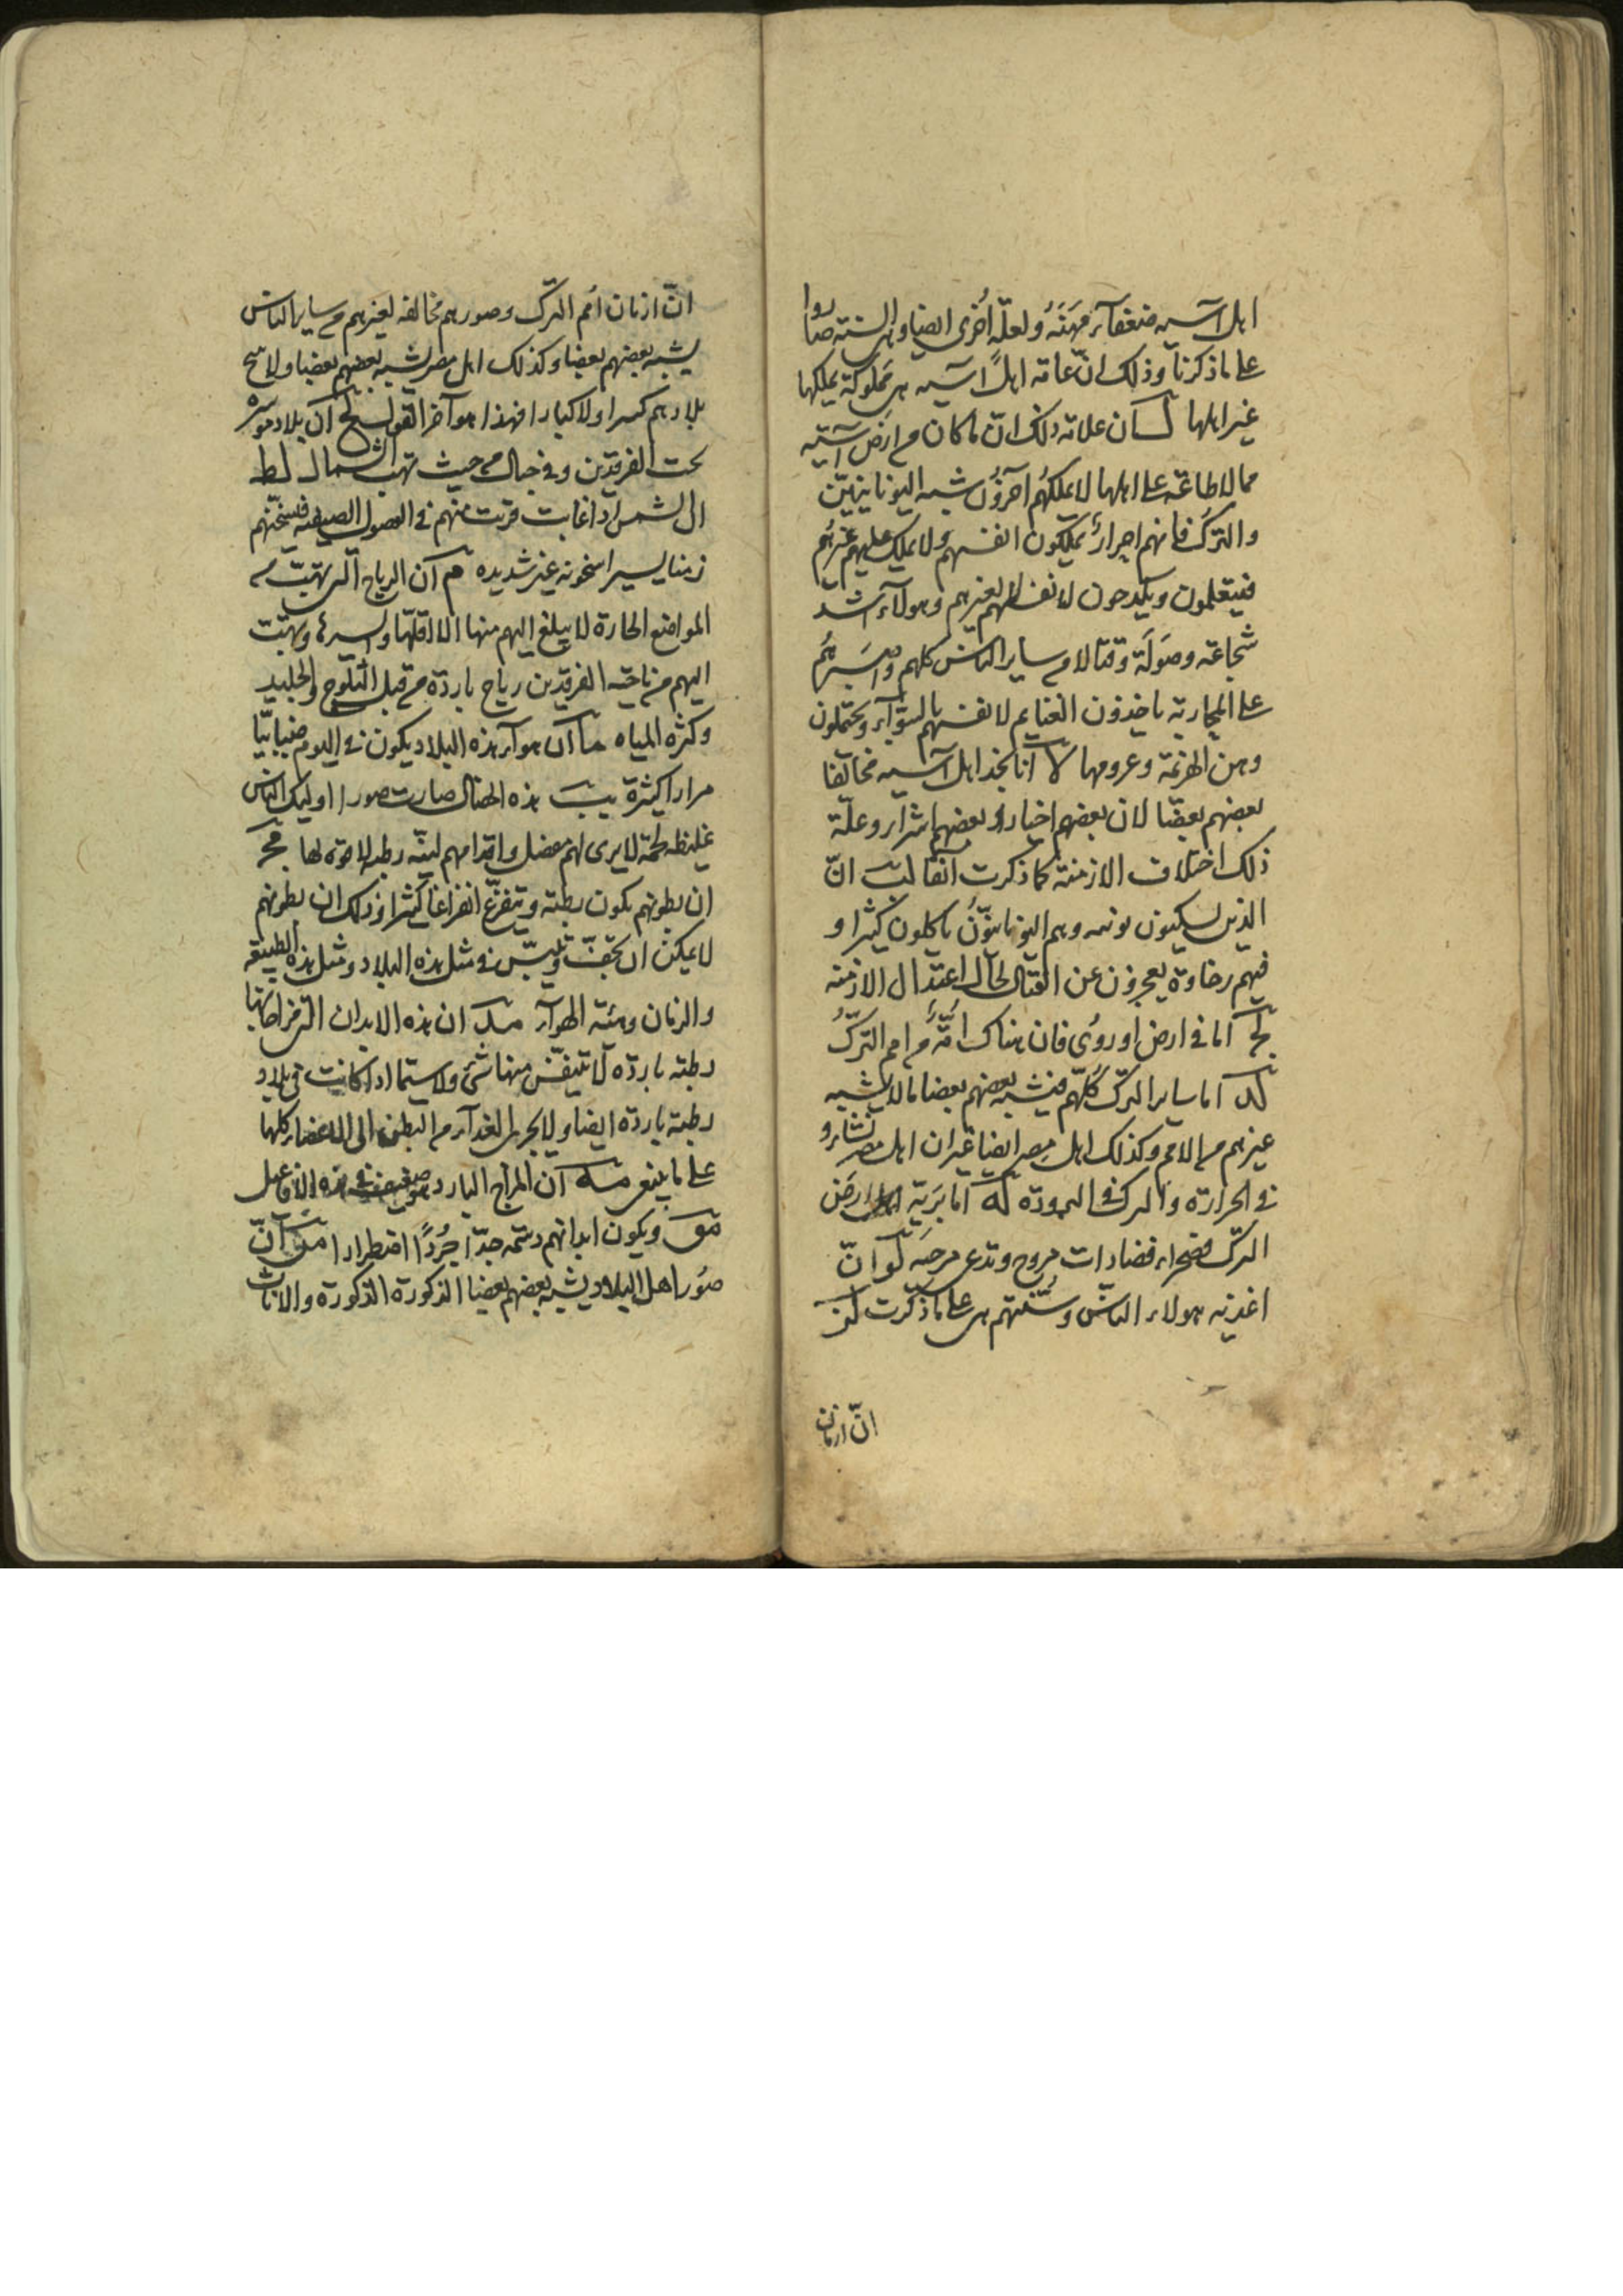 اهل آسيه ضعفآء مهنة ولعلة اخرى ايضا وهى السنة صاروا
على ما ذكرنا وذلك ان عامة اهل آسيه هى مملوكة يملكها
غير اهلها لسان علامة ذلك ان ما كان من ارض آسية
مما لا طاعة على اهلها لا يملكهم آخرون شبه اليونانيين
والترك فانهم احرار يملكون انفسهم ولا يملك عليهم غيرهم
فيتعلمون ويكدحون لانفسهم لا لغيرهم وهولآء اشد
شجاعة وصولة وقتالا من ساير الناس كلهم
على المحاربة ياخذون الغنايم لانفسهم بالسوآء ويحتملون
وهن الهزيمة وغرومها لا انا نجد اهل آسيه مخالفا
بعضهم بعضا لان بعضهم اخيار وبعضهم اشرار وعلة
ذلك اختلاف الازمنة كما ذكرت آنفا لب ان
الذين يسكنون وهم اليونانيون ياكلون كثيرا و
فيهم رخاوة يعجزون عن القتال لحال اعتدال الازمنه
لج اما فى ارض اوروفى فان هناك امة من امم الترك
لد اما ساير الترك كلهم فيشبه بعضهم بعضا ما لا يشبه
غيرهم من الامم وكذلك اهل مصر ايضا غير ان اهل مصر نشاءوا
فى الحرارة والترك فى البرودة له اما برية ارض
الترك فصحراء فضا ذات مروج وتدعى لو ان
اغذيه هولاء الناس وسنتهم هى على ما ذكرت لز
ان ازمان
ان ازمان امم الترك وصورهم مخالفه لغيرهم من ساير الناس
يشبه بعضهم بعضا وكذلك اهل مصر يشبه بعضهم بعضا ولا
بلادهم ولا كبارا فهذا هو آخر القول لح ان بلاد
تحت الفرقدين وفى جبال من حيث تهب الشمال لط
ان الشمس اذا غابت قربت منهم فى الفصول الصيفيه فيسخنهم
زمنا يسيرا سخونه غير شديده م ان الرياح التى تهب من
المواضع الحارة لا يبلغ اليهم منها الا اقلها ويسيرها وتهب
اليهم من ناحيه الفرقدين رياح باردة من قبل الثلوج والجليد
وكثره المياه ما ان هوآء هذه البلاد يكون فى اليوم ضبابيا
مرارا كثيرة مب هذه الخصال صارت صور اوليك الناس
غليظه لحمة لا يرى لهم مفصل واقدامهم لينه رطبه لا قوه لها مج
ان بطونهم تكون رطبة ويتفرغ انفراغا كثيرا وذلك ان بطونهم
لا يمكن ان تجف وتيبس فى مثل هذه البلاد ومثل هذه الطبيعه
والزمان وهئية الهوآء مد ان هذه الابدان التى مزاجاتها
رطبته باردة لا يتنفس منها شئ ولا سيما اذا كانت فى بلاد
رطبة باردة ايضا ولا يجرى الغدآء من البطن الى الاعضاء كلها
على ما ينبغى مه ان المزاج البارد هو ضعيف فى هذه الافاعيل
مو ويكون ابدانهم دسمه جدا جردا اضطرارا مز ان
صور اهل البلاد يشبه بعضهم بعضا الذكورة الذكورة والاناث